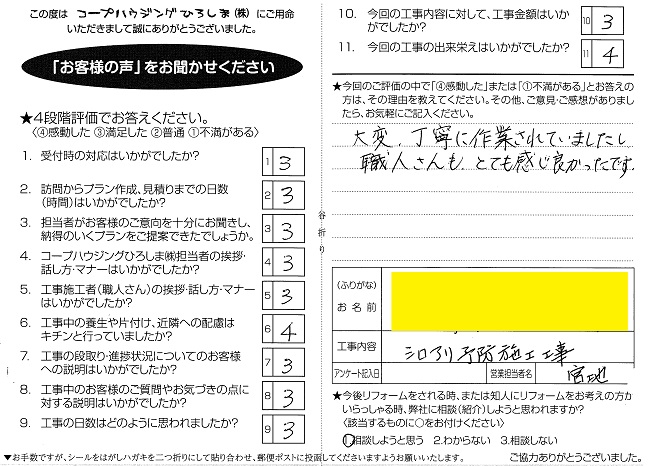 この度は コープハウジングひろしま(株) にご用命
いただきまして誠にありがとうございました。
「お客様の声」をお聞かせください
★4段階評価でお答えください。
〈④感動した ③満足した ②普通 ①不満がある〉
1. 受付時の対応はいかがでしたか? 1 3
2. 訪問からプラン作成、見積りまでの日数
(時間)はいかがでしたか? 2 3
3. 担当者がお客様のご意向を十分にお聞きし、
納得のいくプランをご提案できたでしょうか。 3 3
4. コープハウジングひろしま㈱担当者の挨拶・
話し方・マナーはいかがでしたか? 4 3
5. 工事施工者(職人さん)の挨拶・話し方・マナー
はいかがでしたか? 5 3
6. 工事中の養生や片付け、近隣への配慮は
キチンと行っていましたか? 6 4
7. 工事の段取り・進捗状況についてのお客様
への説明はいかがでしたか? 7 3
8. 工事中のお客様のご質問やお気づきの点に
対する説明はいかがでしたか? 8 3
9. 工事の日数はどのように思われましたか? 9 3
▼お手数ですが、シールをはがしハガキを二つ折りにして貼り合わせ、郵便ポストに投函してくださいますようお願いいたします。
谷折り
10. 今回の工事内容に対して、工事金額はいか
がでしたか? 10 3
11. 今回の工事の出来栄えはいかがでしたか? 11 4
★今回のご評価の中で「④感動した」または「①不満がある」とお答えの
方は、その理由を教えてください。その他、ご意見・ご感想がありまし
たら、お気軽にご記入ください。
大変、丁寧に作業されていましたし
職人さんも、とても感じ良かったです。
(ふりがな)
お名前
工事内容 シロアリ予防施工工事
アンケート記入日 営業担当者名 宮地
★今後リフォームをされる時、または知人にリフォームをお考えの方が
いらっしゃる時、弊社に相談(紹介)しようと思われますか?
〈該当するものに○をお付けください〉
1.相談しようと思う 2.わからない 3.相談しない
ご協力ありがとうございました。